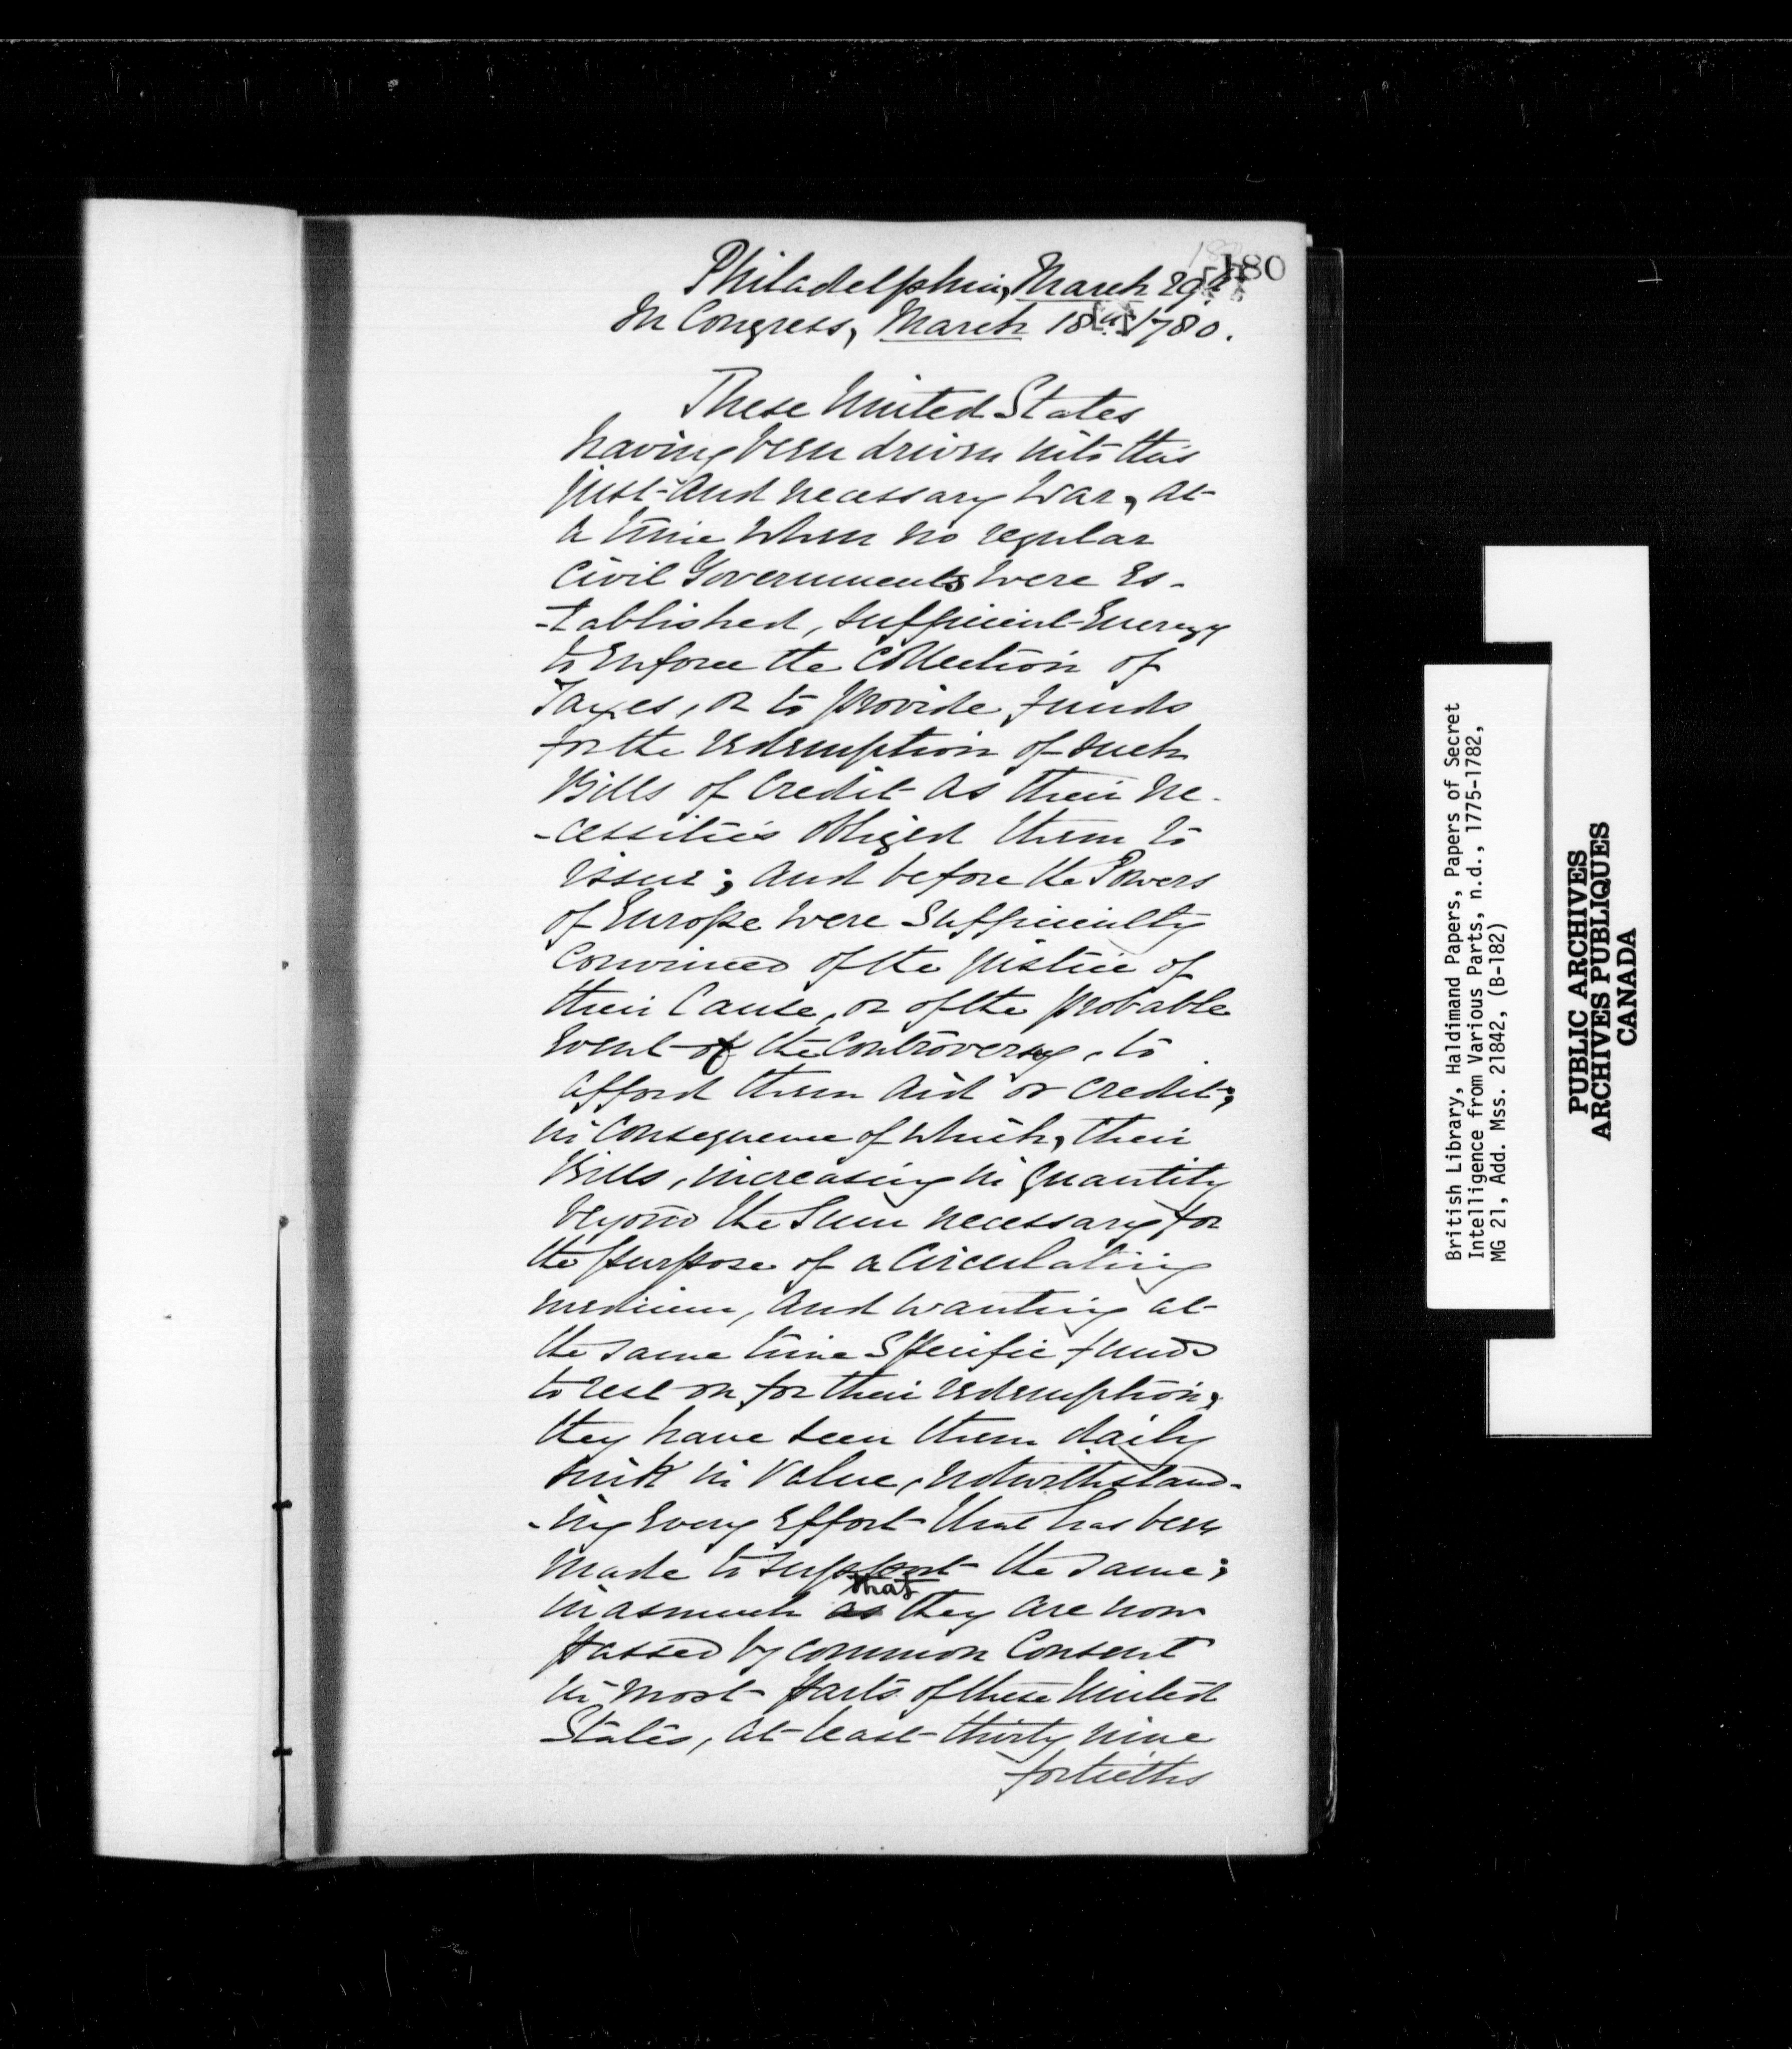 180
Philadelphia, March 29th
In Congress, March 18th 1780.
These United States
having been driven into this
just and necessary War, at
a time when no regular
Civil Governments were es-
-tablished, sufficient Energy
to enforce the Collection of
Taxes, or to provide funds
for the redemption of such
Bills of Credit as their ne-
-cessities obliged them to
issue; and before the Powers
of Europe were sufficiently
Convinced of the justice of
their Cause, or of the probable
event of the Controversy, to
afford them aid or credit;
in Consequence of which, their
Bills, increasing in quantity
beyond the Sum necessary for
the purpose of a Circulating
medium, and wanting at
the same time Specific funds
to rest on for their redemption,
they have seen them daily
sink in Value, notwithstand-
-ing every effort that has been
made to support the same;
that
inasmuch as they are now
passed by common Consent
in most parts of these United
States, at least thirty nine
fortieths
British Library, Haldimand Papers, Papers of Secret
Intelligence from Various Parts, n.d., 1775-1782,
MG 21, Add. Mss. 21842, (B-182)
PUBLIC ARCHIVES
ARCHIVES PUBLIQUES
CANADA